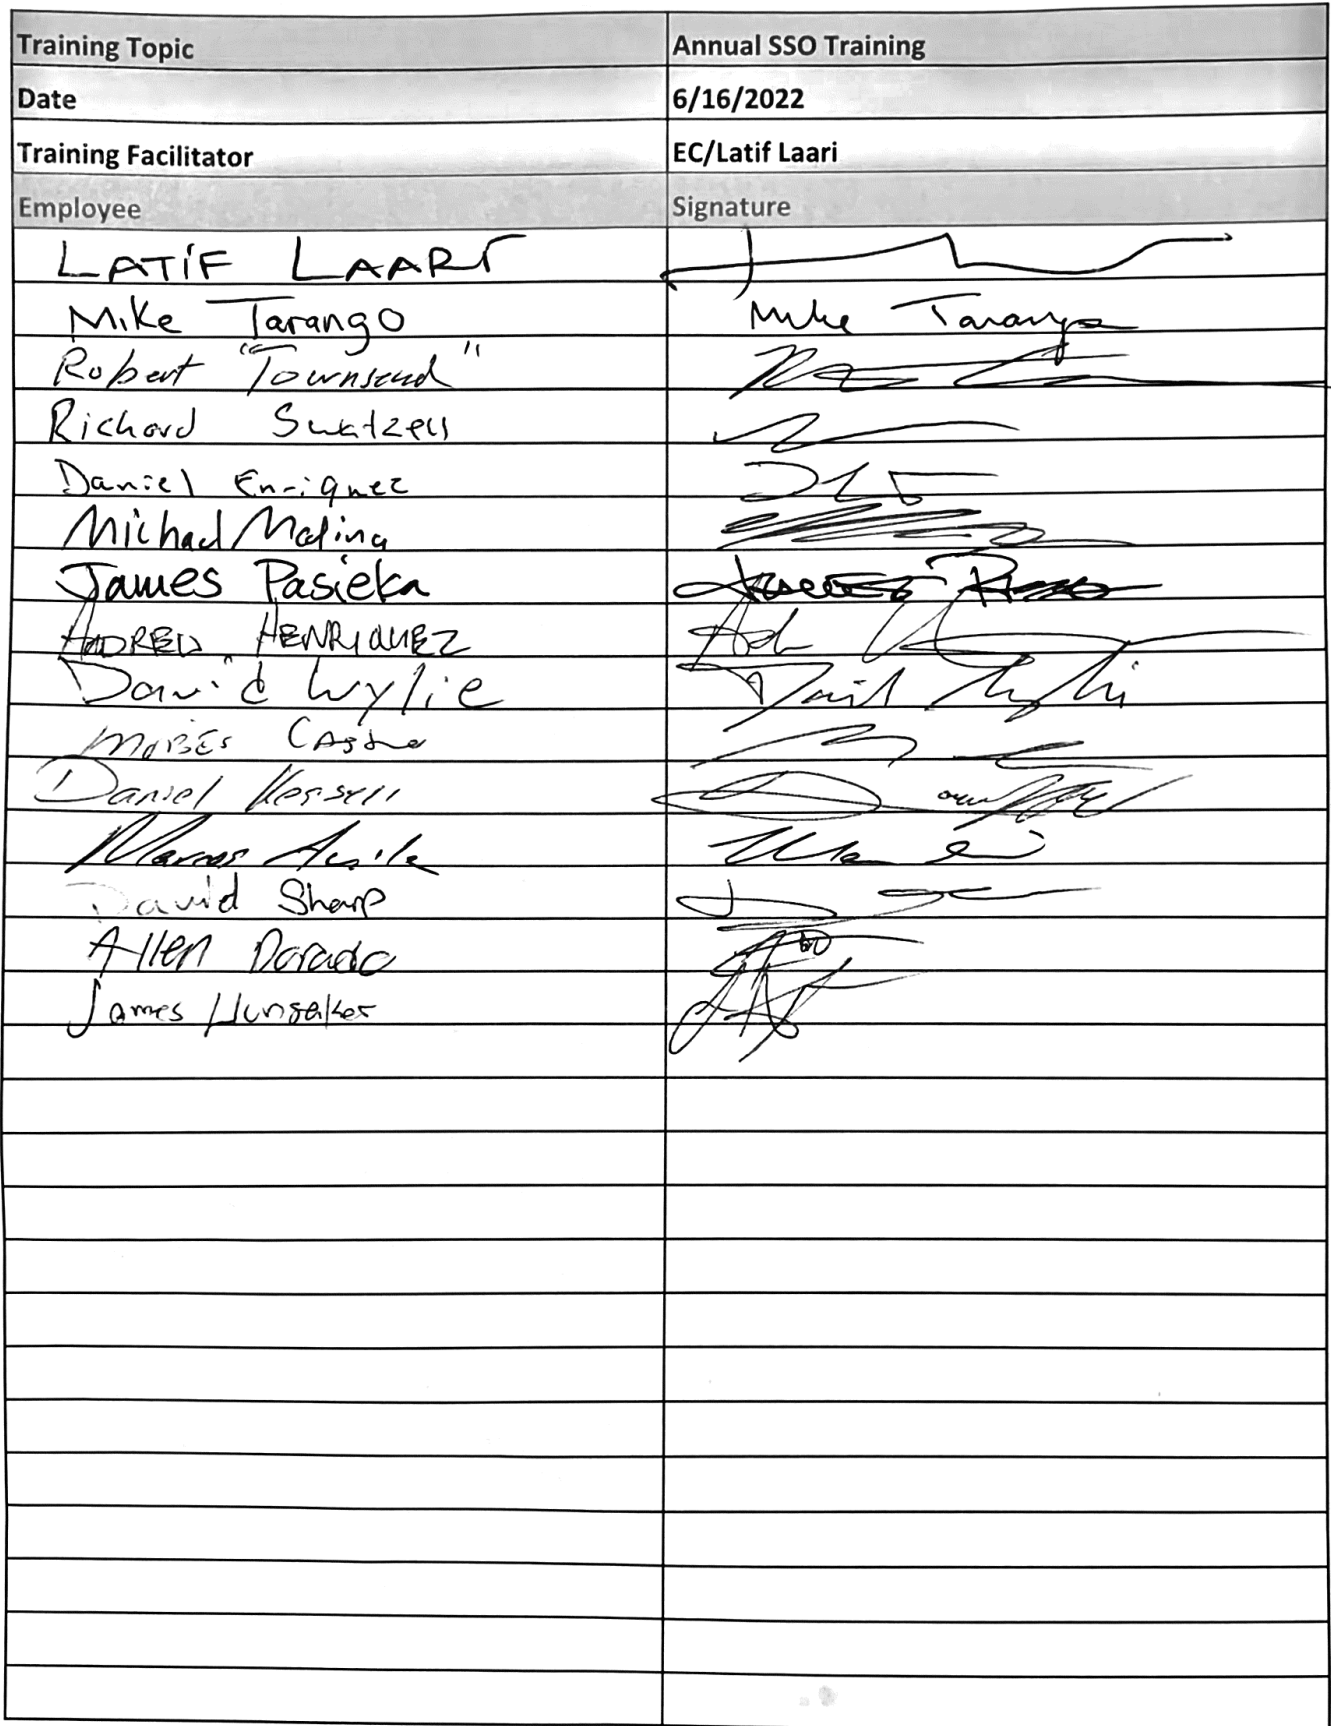 Training Topic Annual SSO Training
Date 6/16/2022
Training Facilitator EC/Latif Laari
Employee Signature
LATIF LAARI
Mike Tarango Mike Tarango
Robert "Townsend"
Richard Swatzell
Daniel Enriquez
Michael Molina
James Pasieka James
ANDREW HENRIQUEZ
David Wylie David Wylie
MOISES Castro
Daniel Kessell
Marcos
David Sharp
Allen Dorado
James Hunsaker